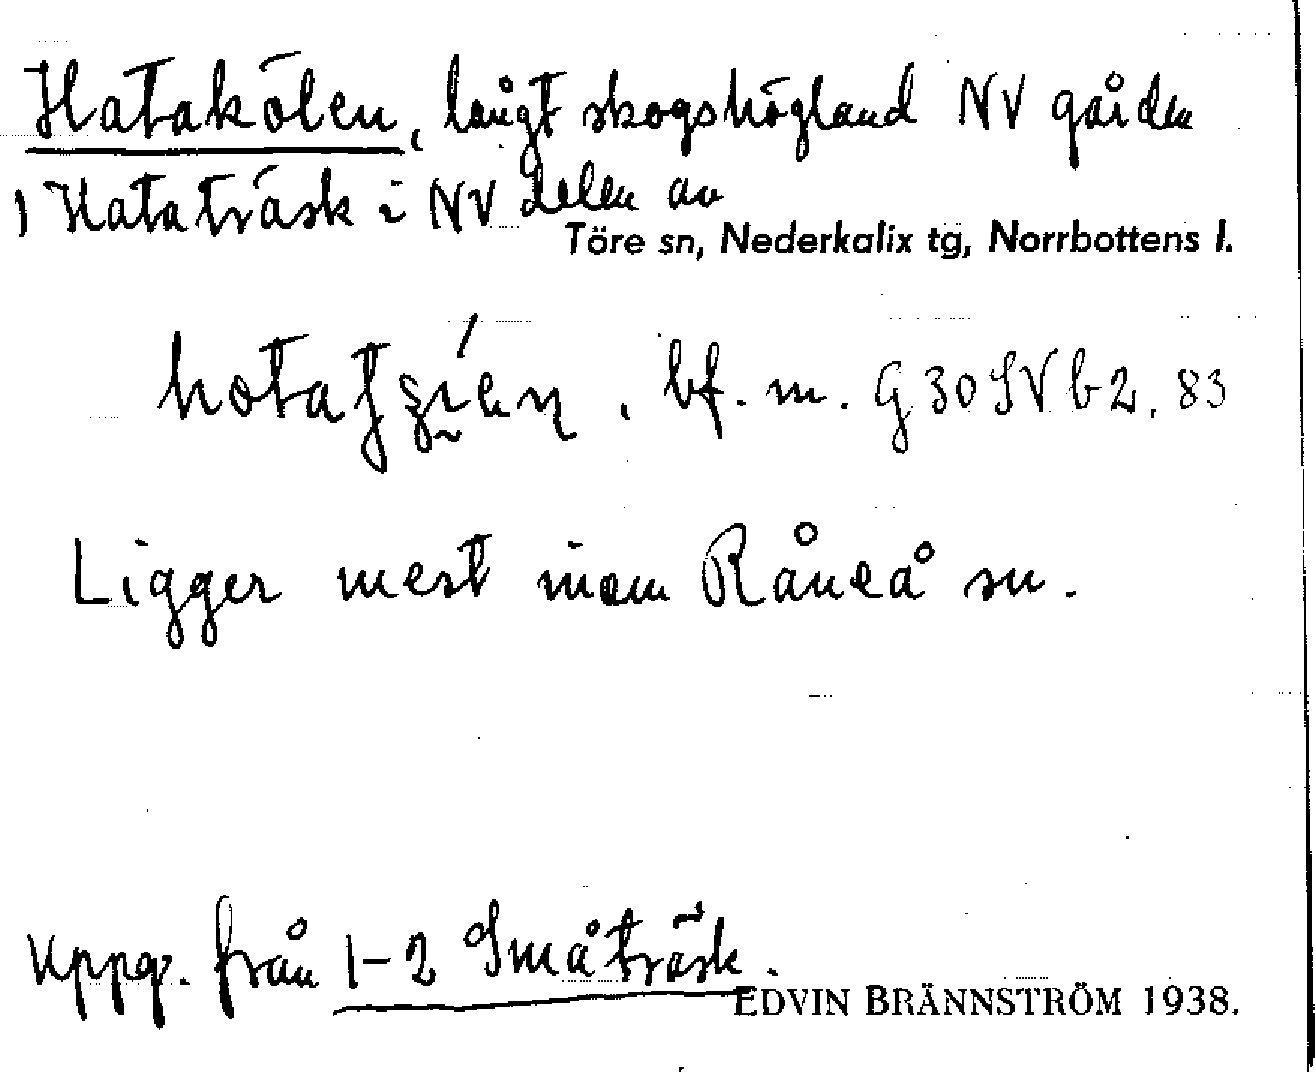 Hatakölen, långt skogshögland NV gården
1 Hataträsk i NV delen av
Töre sn, Nederkalix tg, Norrbottens l.
bf. m. G30SVb2, 83
Ligger mest inom Råneå sn.
Uppg. från 1-2 Småträsk.
EDVIN BRÄNNSTRÖM 1938.